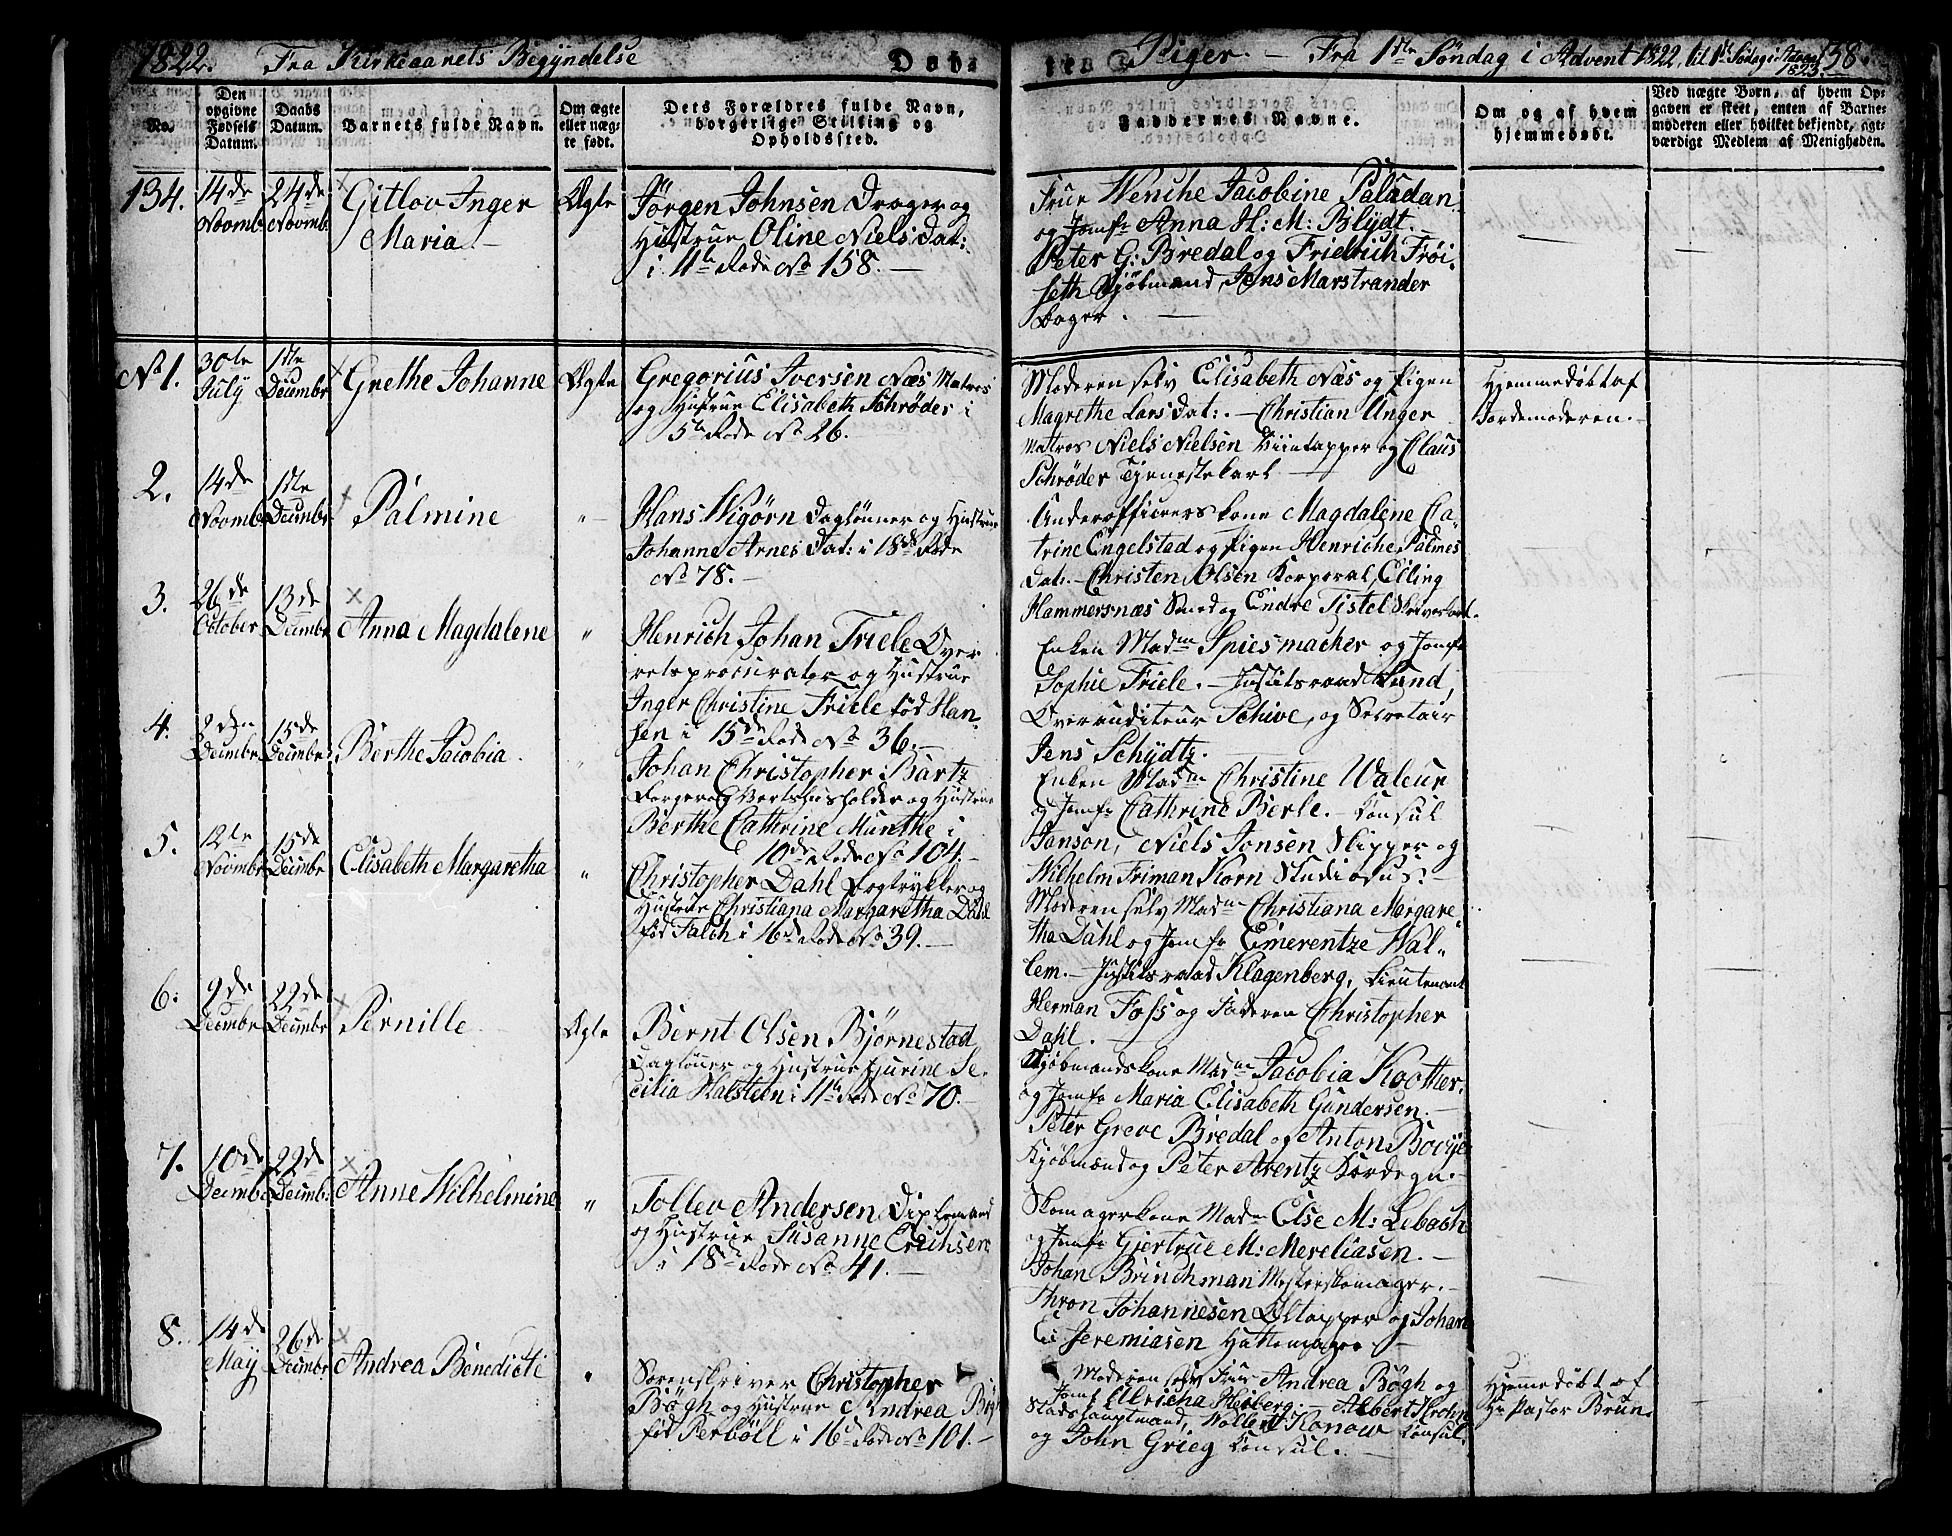 1822. Fra Kirkeaarets Begyndelse Døb- te Piger. — Fra 1ste Söndag i Advent 1822, til 1ste Södag i Advent 1823. — 138.
No.
Den opgivne Fødsels Datum.
Daabs Datum.
Barnets fulde Navn.
Om ægte eller uægte født.
Dets Forældres fulde Navn, borgerlige Stilling og Opholdssted.
Faddernes Navne.
Om og af hvem hjemmedøbt.
Ved uægte Børn, af hvem Opgaven er skeet, enten af Barnemoderen eller hvilket bekjendt, agtværdigt Medlem af Menigheden.
134. 14de Novembr 24de Novembr Gitlov Inger Maria — Ægte
Jørgen Johnsen Drager og
Hustrue Oline Niels Dat:
i 11te Rode No 158. —
Frue Wenche Jacobine Paludan
og Jomfr Anna H: M: Blydt. —
Peter G: Bredal og Friedrich Frøi-
seth Kjöbmænd, Jens Marstrander
Bager. —
No 1. 30te July 1ste Decembr Grethe Johanne Ægte
Gregorius Iversen Næs Matros
og Hustrue Elisabeth Schrøder i
5te Rode No 26. —
Moderen selv Elisabeth Næs og Pigen
Magrethe Lars Dat: — Christian Unger
Matros Niels Nielsen Viintapper og Claus
Schrøder Tjenestekarl —
Hjemmedöbt af
Jordemoderen. —
2. 14de Novembr 1ste Decembr Palmine "
Hans Wigørn Daglönner og Hustrue
Johanne Arnes Dat: i 18de Rode
No 78. —
Underofficeers kone Magdalene Ca-
trine Engelstad og Pigen Henriche Palmes
Dat. — Christen Olsen Korporal, Elling
Hammersnæs Smed og Endre Tistel Skriverkarl.
3. 26de October 13de Decembr Anna Magdalene "
Henrich Johan Friele Over
retsprocurator og Hustrue
Inger Christine Friele föd Han-
sen i 15de Rode No 36. —
Enken Madme Spiesmacher og Jomfr
Sophie Friele. — Justitsraad Lund,
Overauditeur Schive, og Secretair
Jens Schydtz. —
4. 2den Decembr 15de Decembr Berthe Jacobia. "
Johan Christopher Bartz
Borger og Vertshusholder og Hustrue
Berthe Cathrine Munthe i
10de Rode No 104. —
Enken Madme Christine Waleur
og Jomfr Cathrine Berle. — Consul
Janson, Niels Jonsen Skipper og
Wilhelm Friman Korn Studiosus. —
5. 12te Novembr 15de Decembr Elisabeth Margaretha "
Christopher Dahl Bogtrykker og
Hustrue Christiana Margaretha Dahl
föd Falch i 16de Rode No 39. —
Moderen selv Madme Christiana Margare-
tha Dahl og Jomfr Emerentze Wal-
lem. — Justitsraad Klagenberg, Lieutenant
Herman Foss og Faderen Christopher
Dahl. —
6. 9de Decembr 22de Decembr Pernille Ægte
Bernt Olsen Bjørnestad
Daglöner og Hustrue Gurine Se-
cilia Halsteen i 11te Rode No 70. —
Kjöbmandskone Madme Jacobia Koother,
og Jomfr Maria Elisabeth Gundersen. —
Peter Greve Bredal og Anton Booye
Kjöbmænd og Peter Arentz Kordegn. —
7. 10de Decembr 22de Decembr Anne Wilhelmine "
Tollev Andersen
og Hustrue Susanne Erichsen
i 18de Rode No 41. —
Skomagerkone Madme Else M: Lebach
og Jomfr Gjertrue M: Mereliasen. —
Johan Brinchman Mesterskomager. —
Thron Johannesen Öltapper og Johan
E: Jeremiasen Hattemager —
8. 14de May 26de Decembr Andrea Benedicte "
Sorenskriver Christopher
Bögh og Hustrue Andrea Bögh
föd Perböll i 16de Rode No 101. —
Moderen selv Frue Andrea Bögh og
Jomf Ulricha Heiberg. — Albert Krohn
Stadshauptmand, Wollert Konow Consul,
og John Grieg Consul. —
Hjemmedöbt af
Hr Pastor Brun.